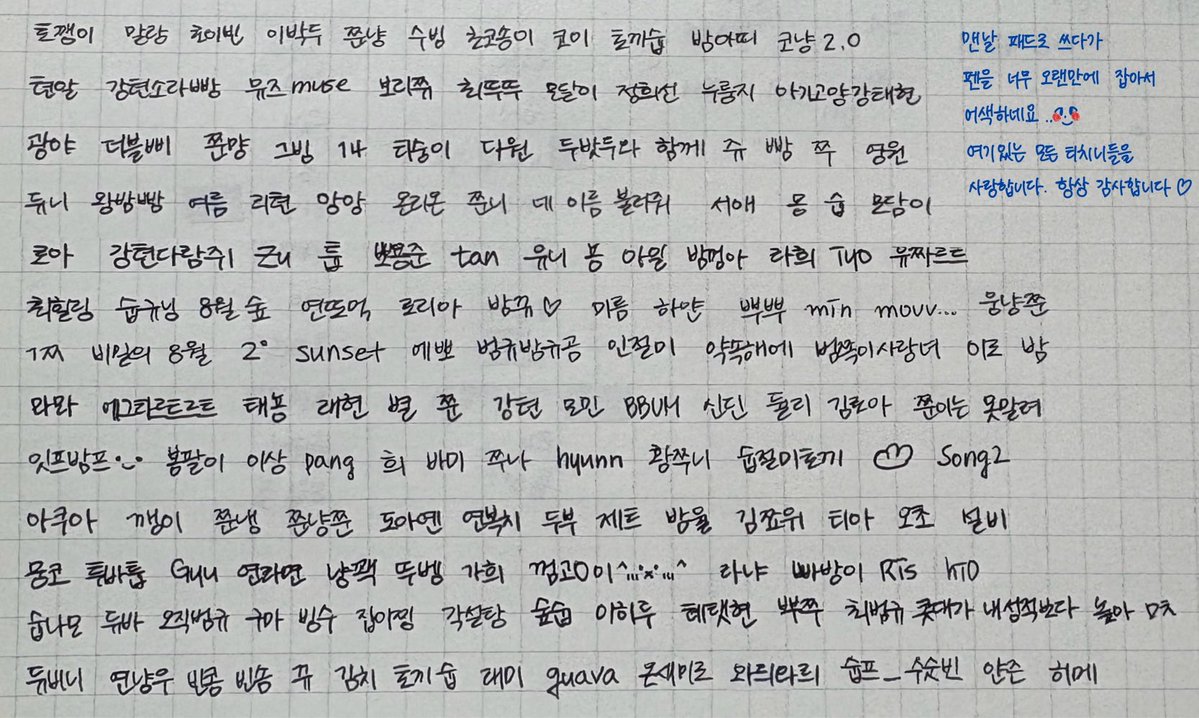 토깽이 말랑 초이빈 이박두 쭌냥 수빙 초코송이 코이 토까숩 밤아띠 코냥 2.0
현말 강현소라빵 뮤즈 muse 보리쮸 최뚜뚜 모달이 정희선 누룽지 아기고양강태현
광야 더블삐 쭌먕 그빔 14 타숭이 다원 두밧두와 함께 쥬 빵 쭈 영원
듀니 왕방빵 여름 리현 앙앙 온리온 쭌니 네 이름 불러줘 서애 몽 숩 모담이
로아 강현다람쥐 Zu 툽 뽀용준 tan 유니 봉 아월 밤껌아 라희 TyO 유짜르트
최힐링 숩규닝 8월 숲 연뜨억 로디아 방뀨♡ 미름 하얀 뿌뿌 min movv... 웅냥쭌
비밀의 8월 2° sunset 예뽀 범규밤규곰 인절미 약쏙해에 범쪽이사랑녀 이로 밤
와와 에그타르트르트 태봉 래현 별 쭌 강현 모민 BBUM 신딘 둘리 김로아 쭌이는 못말려
잇프밤프 봉팔이 이상 pang 희 바미 쭈나 hyunn 황쭈니 숩절미토끼 ♡ Song2
아쿠아 깽이 쭌냉 쭌냥쭌 도아엔 연복치 두부 제트 밤율 김쬬위 티아 오쵸 널비
몽코 투바툽 Guu 연라면 냥꽥 뚜벵 가희 껌고0이^,,,;x;,,,^ 라냐 빠방이 RTs hTO
숩나모 듀바 오직범규 구마 빙수 집아찡 각설탕 숲숩 이하루 테탯현 뿌쭈 최범규 콧대가 내성적보다 높아 모츠
듀버니 연냥우 빈콩 빈솜 뀨 김치 토끼숩 대미 guava 온세미로 와듸라리 숩프_수슛빈 얀슨 히메
맨날 패드로 쓰다가
펜을 너무 오랜만에 잡아서
어색하네요..
여기있는 모든 타치니들을
사랑합니다. 항상 감사합니다♡